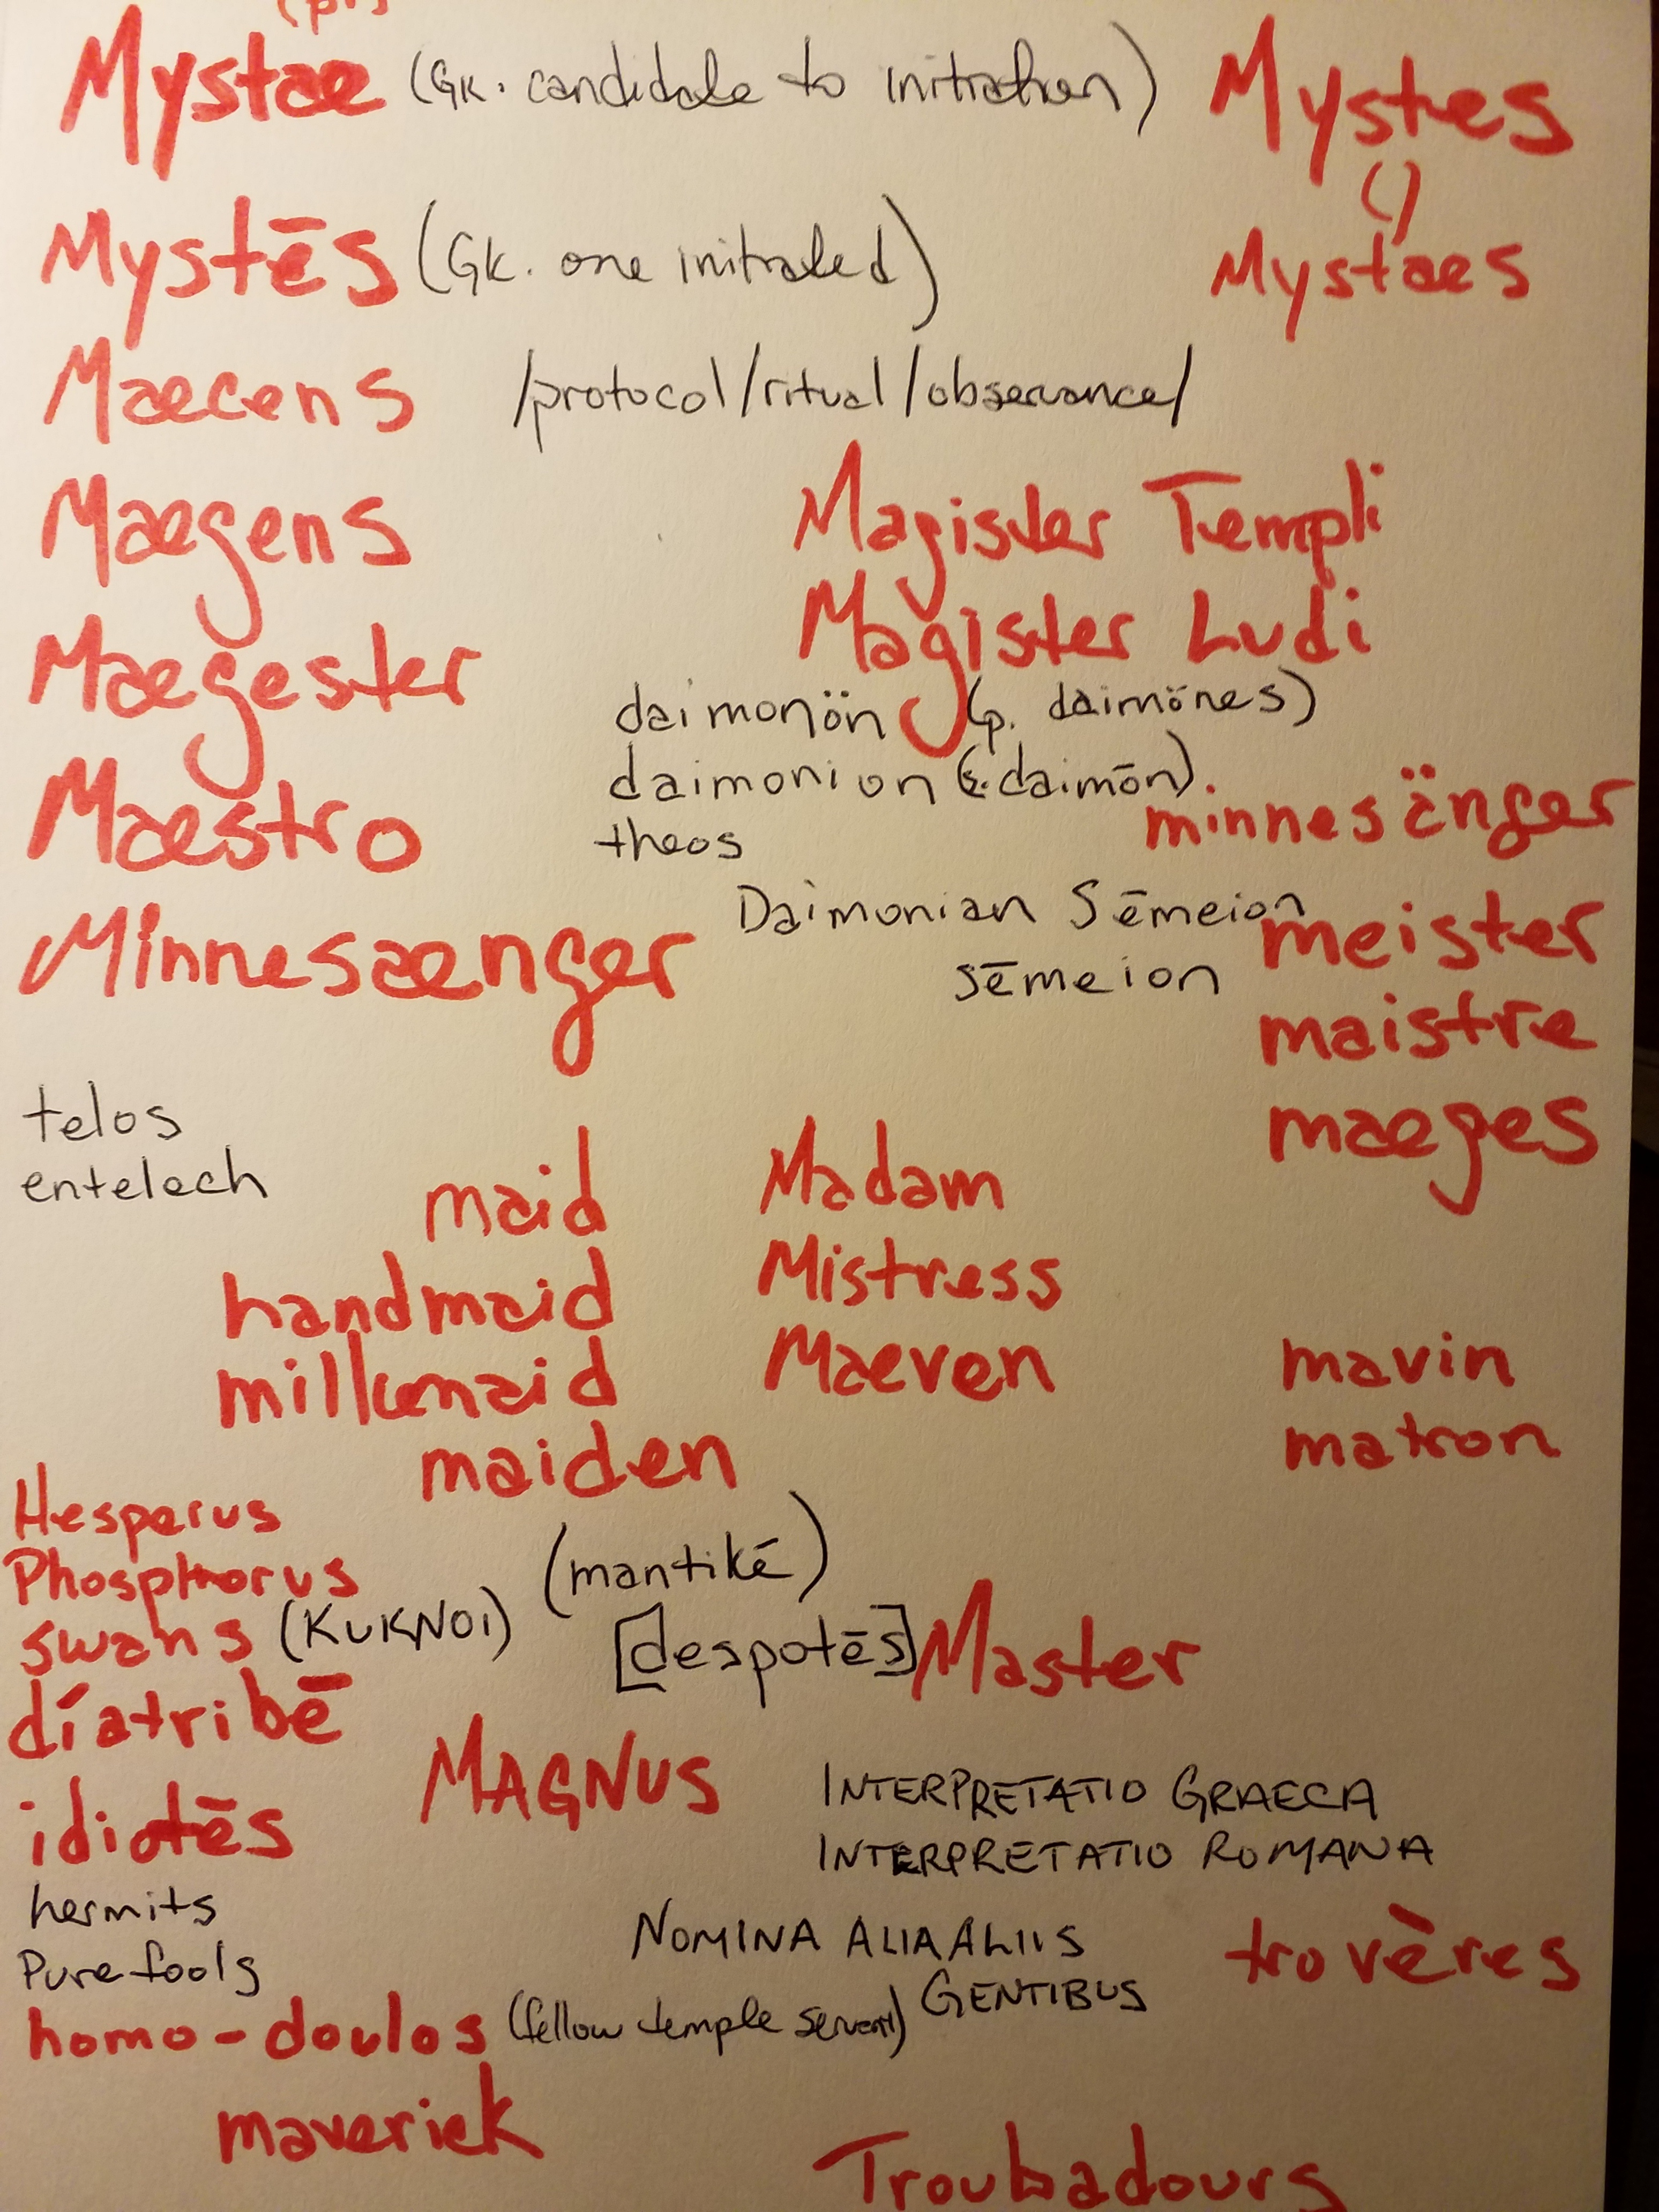 (pl)
Mystae (Gk. candidate to initiation) Mystes
()
Mystēs (Gk. one initiated) Mystaes
Maecens /protocol/ritual/observance/
Maegens Magister Templi
Maegester Magister Ludi
daimonön (p. daimönes)
daimonion (s. daimōn)
Maestro theos minnesänger
Minnesaenger Daimonian Sēmeion meister
sēmeion
maistre
telos maeges
entelech
maid Madam
handmaid Mistress
milkmaid Maeven mavin
maiden matron
Hesperus
Phosphorus (mantikē)
swans (KUKNOI) [despotēs] Master
díatribē
MAGNUS INTERPRETATIO GRAECA
idiotēs INTERPRETATIO ROMANA
hermits
Pure fools NOMINA ALIA ALIIS trovères
GENTIBUS
homo-doulos (fellow temple servant)
maverick
Troubadours